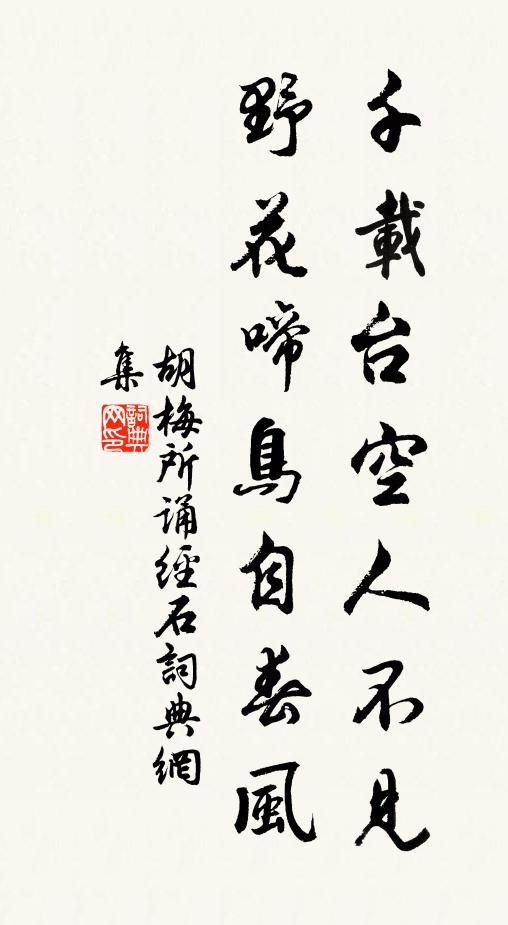 千載台空人不見
野花啼鳥自春風
胡梅所誦經石詞典網
集
詞典
网印